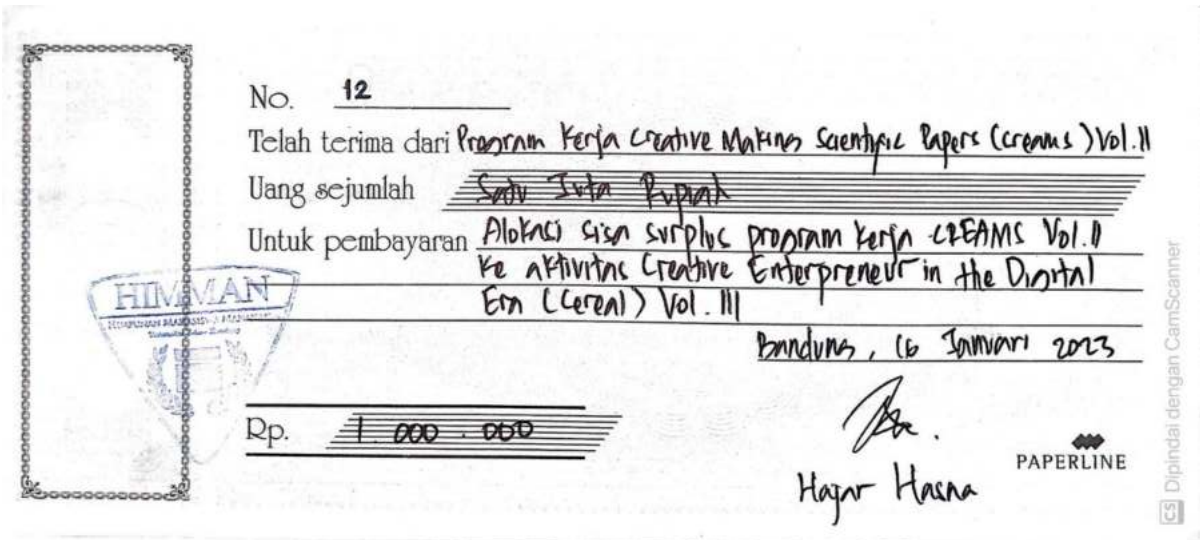 No. 12
Telah terima dari Program Kerja Creative Making Scientific Papers (creams) Vol. II
Uang sejumlah Satu Juta Rupiah
Untuk pembayaran Alokasi sisa surplus program kerja CREAMS Vol. II
ke aktivitas Creative Enterpreneur in the Digital
Era (Cereal) Vol. III
HIMMAN
HIMPUNAN MAHASISWA MANAJEMEN
Bandung, 16 Januari 2023
Rp. 1.000.000
PAPERLINE
Hajar Hasna
CS Dipindai dengan CamScanner